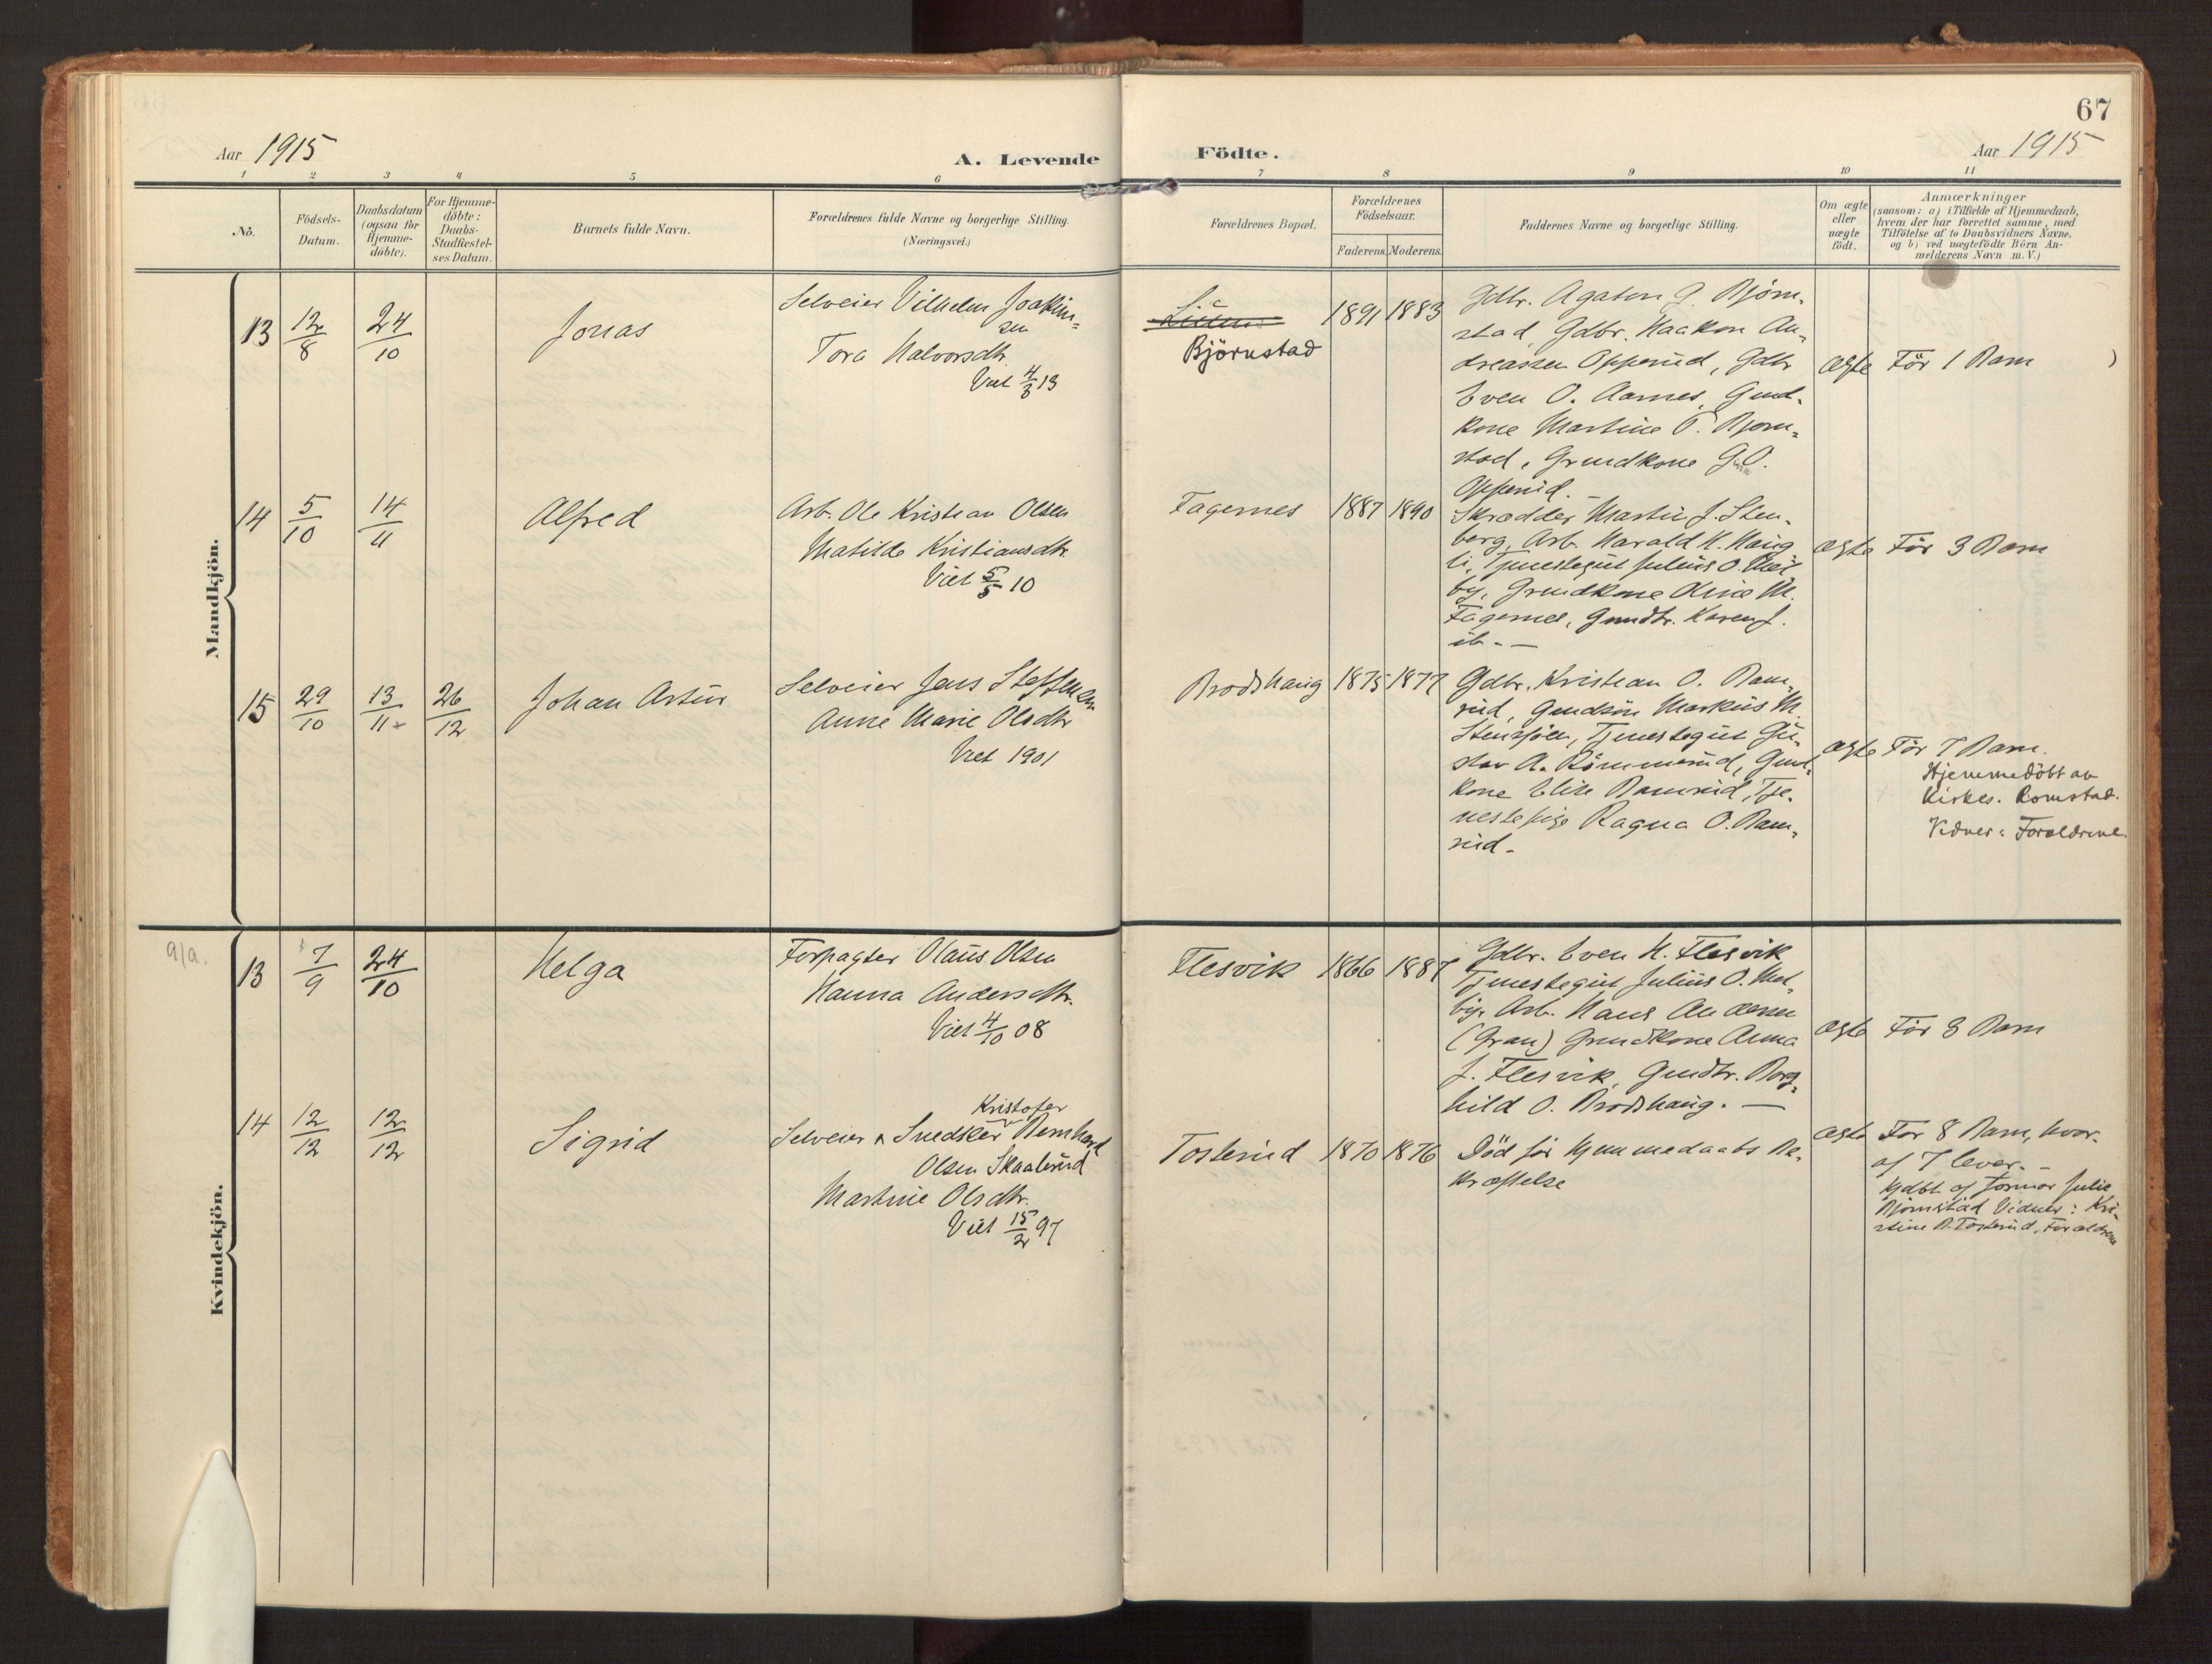 67
Aar 1915
A. Levende
Fødte.
Aar 1915
1 2 3 4 5 6 7 8 9 10 11
No.
Födsels-
Datum.
Daabsdatum
(ogsaa for
Hjemme-
döbte).
For Hjemme-
döbte:
Daabs-
Stadfæstel-
ses Datum.
Barnets fulde Navn.
Forældrenes fulde Navne og borgerlige Stilling.
(Næringsvei.)
Forældrenes Bopæl.
Forældrenes
Födselsaar.
Faderens. Moderens.
Faddernes Navne og borgerlige Stilling.
Om ægte
eller
uægte
födt.
Anmærkninger
(saasom: a) i Tilfælde af Hjemmedaab,
hvem der har forrettet samme, med
Tilföielse af to Daabsvidners Navne,
og b) ved uægtefödte Börn An-
melderens Navn m. V.)
Mandkjön.
13
12/8
24/10
Jonas
Selveier Vilhelm Joakim-
sen
Tora Halvorsdtr
Viet 4/3 13
Björnstad
1891 1883
Gdbr. Agaton G. Björn-
stad, Gdbr. Haakon An-
dreassen Opperud, Gdbr
Even O. Aarnes, Gaard-
kone Martine P. Bjørn-
stad, Grundkone G. O.
Opperud. –
ægte
För 1 Barn
14
5/10
14/11
Alfred
Arb. Ole Kristian Olsen
Matilde Kristiansdtr
Viet 5/5 10
Fagernes
1887 1890
Skrædder Martin J. Sten-
berg, Arb. Harald H. Haug
li, Tjenestegut Julius O. Mel
by, Grundkone M.
Fagernes, Grundtr. Karen J.
ib. –
ægte
För 3 Barn
15
29/10
13/11
26/12
Johan Artur
Selveier Jens Steffensen
Anne Marie Olsdtr
Viet 1901
Brodshaug
1875 1877
Gdbr. Kristian O. Ram-
rud, Grundsön Markus M.
Stensjöen, Tjenestegut Gu-
stav A. Römmerud, Grund
kone Elise Ramrud, Tje-
nestepige Ragna O. Ram-
rud.
ægte
För 7 Barn.
Hjemmedöbt av
Kirkes. Romstad.
Vidner: Forældrene.
Kvindekjön.
a/a.
13
7/9
24/10
Helga
Forpagter Olaus Olsen
Hanna Andersdtr.
Viet 4/10 08
Flesvik
1866 1887
Gdbr. Even H. Flesvik
Tjenestegut Julius O. Mel-
by, Arb. Hans Andersen
(Gran) Grundkone Anna
J. Flesvik, Grundtr. Borg-
hild O. Brodshaug. –
ægte
För 3 Barn
14
12/12
12/12
Sigrid
Kristofer
Selveier & Snedker Bernhard
Olsen Skaalerud
Martine Olsdtr.
Viet 15/2 97
Tosterud
1870 1876
Död för Hjemmedaabs Be-
kræftelse
ægte
För 8 Barn, hvor-
af 7 lever. –
Hjdbt. af Jormor Julie
Bjørnstad Vidner: Kri-
stine B. Tosterud, Forældrene